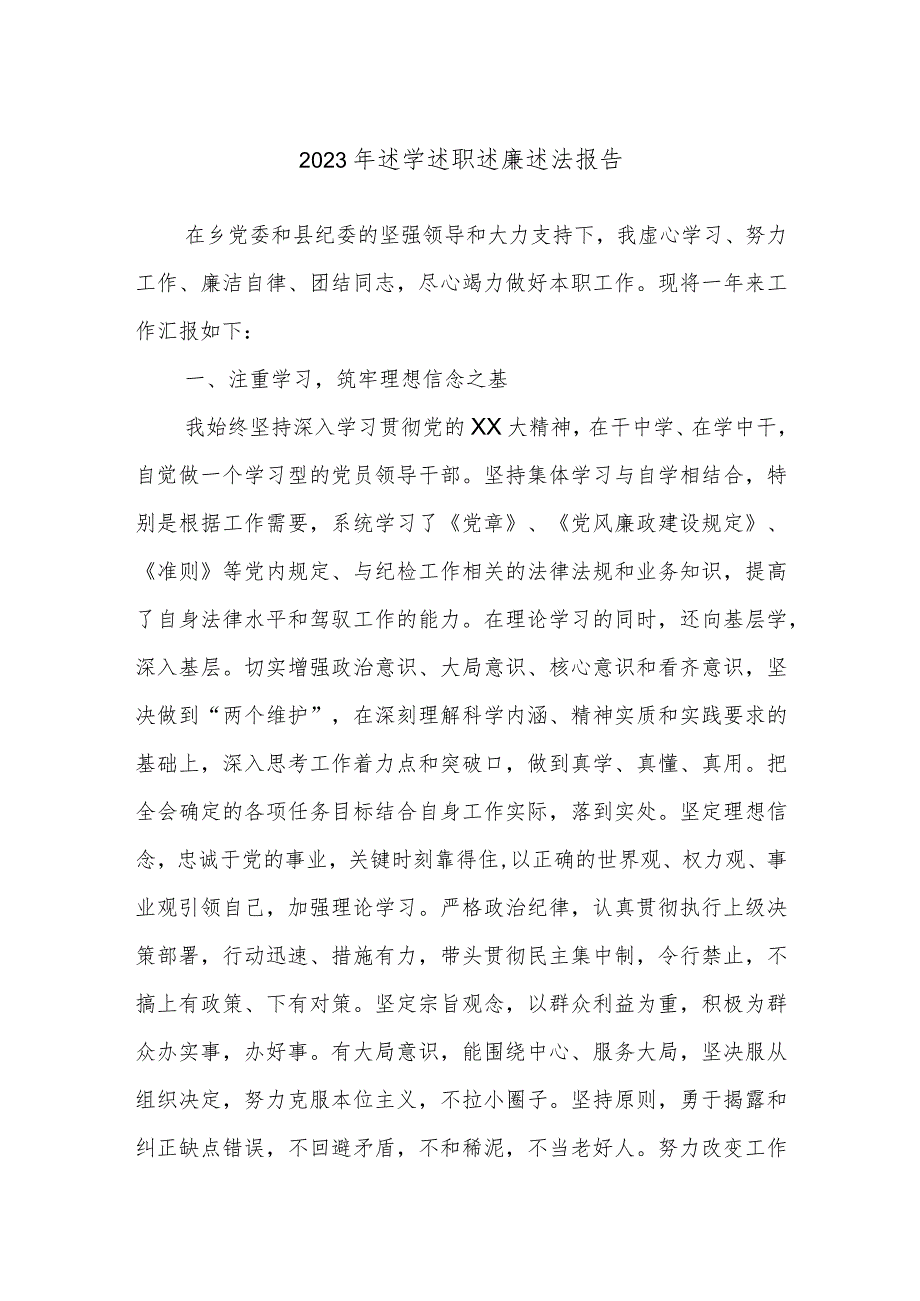 2023年述学述职述廉述法报告
在乡党委和县纪委的坚强领导和大力支持下，我虚心学习、努力
工作、廉洁自律、团结同志，尽心竭力做好本职工作。现将一年来工
作汇报如下：
一、注重学习，筑牢理想信念之基
我始终坚持深入学习贯彻党的XX大精神，在干中学、在学中干，
自觉做一个学习型的党员领导干部。坚持集体学习与自学相结合，特
别是根据工作需要，系统学习了《党章》、《党风廉政建设规定》、
《准则》等党内规定、与纪检工作相关的法律法规和业务知识，提高
了自身法律水平和驾驭工作的能力。在理论学习的同时，还向基层学，
深入基层。切实增强政治意识、大局意识、核心意识和看齐意识，坚
决做到“两个维护”，在深刻理解科学内涵、精神实质和实践要求的
基础上，深入思考工作着力点和突破口，做到真学、真懂、真用。把
全会确定的各项任务目标结合自身工作实际，落到实处。坚定理想信
念，忠诚于党的事业，关键时刻靠得住,以正确的世界观、权力观、事
业观引领自己，加强理论学习。严格政治纪律，认真贯彻执行上级决
策部署，行动迅速、措施有力，带头贯彻民主集中制，令行禁止，不
搞上有政策、下有对策。坚定宗旨观念，以群众利益为重，积极为群
众办实事，办好事。有大局意识，能围绕中心、服务大局，坚决服从
组织决定，努力克服本位主义，不拉小圈子。坚持原则，勇于揭露和
纠正缺点错误，不回避矛盾，不和稀泥，不当老好人。努力改变工作